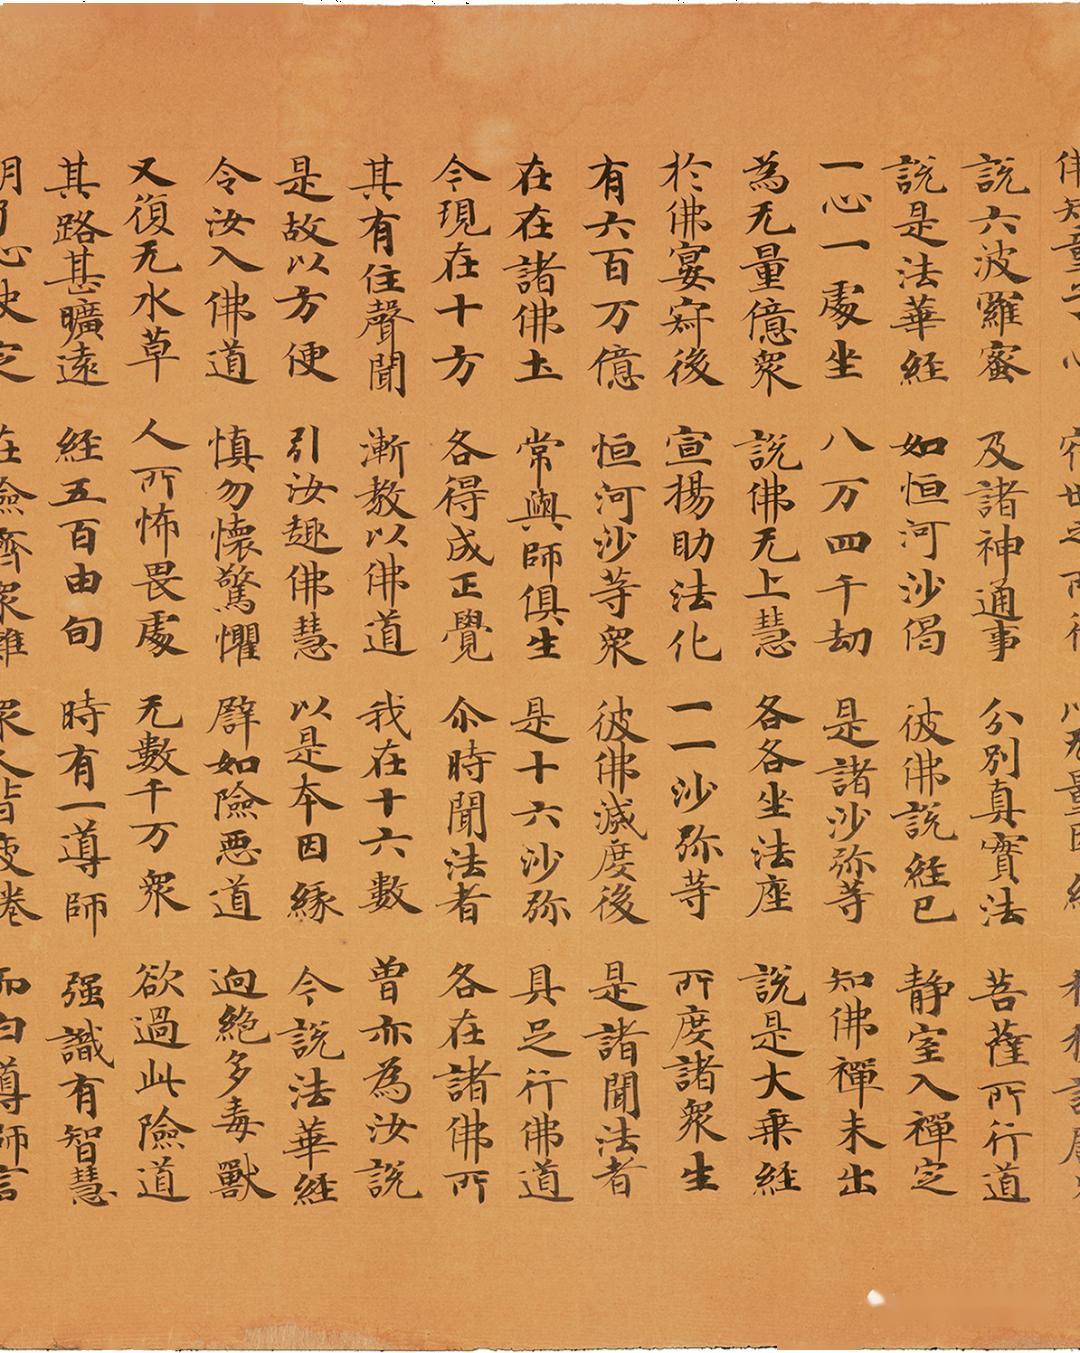 佛知童子心 宿世之所行 以无量因縁 種種諸
説六波羅蜜 及諸神通事 分別真實法 菩薩所行道
説是法華経 如恒河沙偈 彼佛説経已 静室入禪定
一心一處坐 八万四千劫 是諸沙弥等 知佛禪未出
為无量億衆 説佛无上慧 各各坐法座 説是大乗経
於佛宴寂後 宣揚助法化 一一沙弥等 所度諸衆生
有六百万億 恒河沙等衆 彼佛滅度後 是諸聞法者
在在諸佛土 常與師俱生 是十六沙弥 具足行佛道
今現在十方 各得成正覺 尒時聞法者 各在諸佛所
其有住聲聞 漸教以佛道 我在十六數 曾亦為汝説
是故以方便 引汝趣佛慧 以是本因縁 今説法華経
令汝入佛道 慎勿懷驚懼 譬如險惡道 迥絶多毒獸
又復无水草 人所怖畏處 无數千万衆 欲過此險道
其路甚曠遠 経五百由旬 時有一導師 强識有智慧
明了心決定 在險濟衆難 衆人皆疲惓 而白導師言